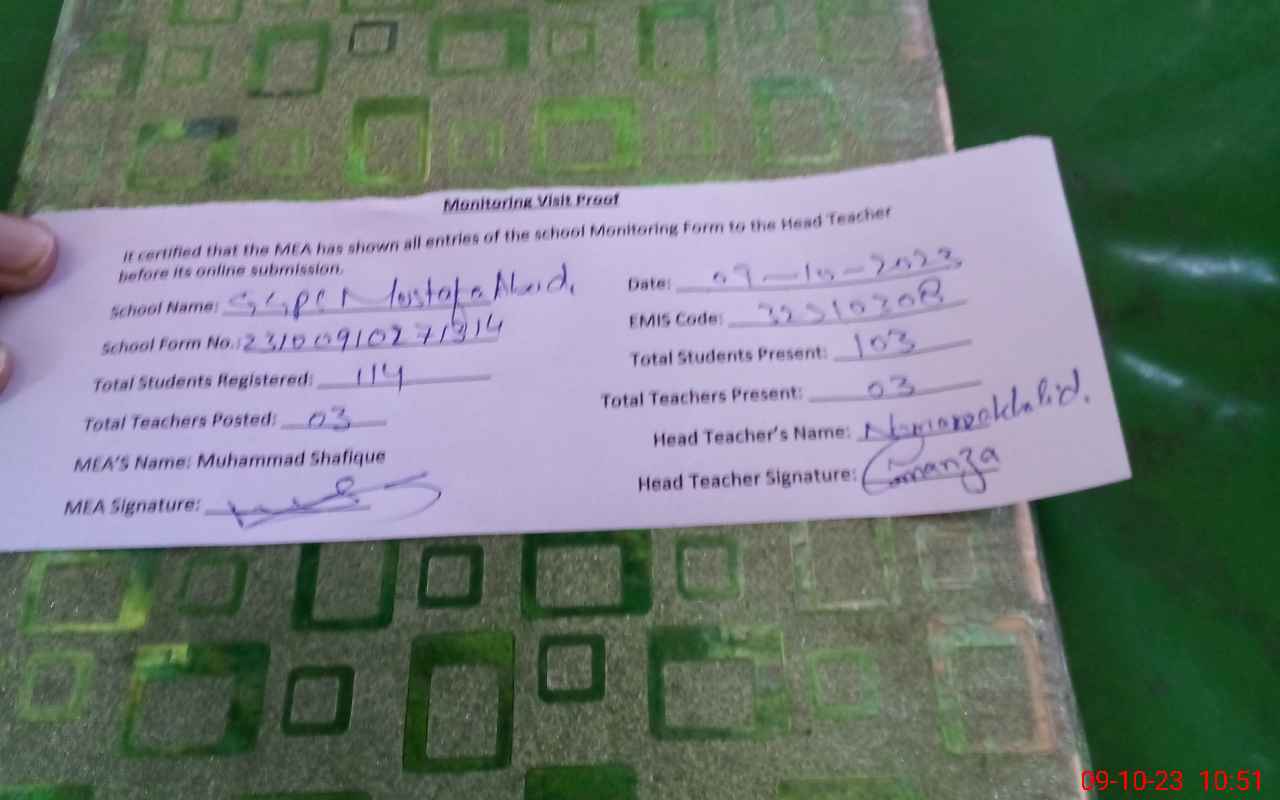 Monitoring Visit Proof
It certified that the MEA has shown all entries of the school Monitoring Form to the Head Teacher
before its online submission.
School Name: Mustafa Abad. Date: 09-10-2023
School Form No.: EMIS Code:
Total Students Registered: 114 Total Students Present: 103
Total Teachers Posted: 03 Total Teachers Present: 03
MEA'S Name: Muhammad Shafique Head Teacher's Name:
MEA Signature: Head Teacher Signature:
09-10-23 10:51